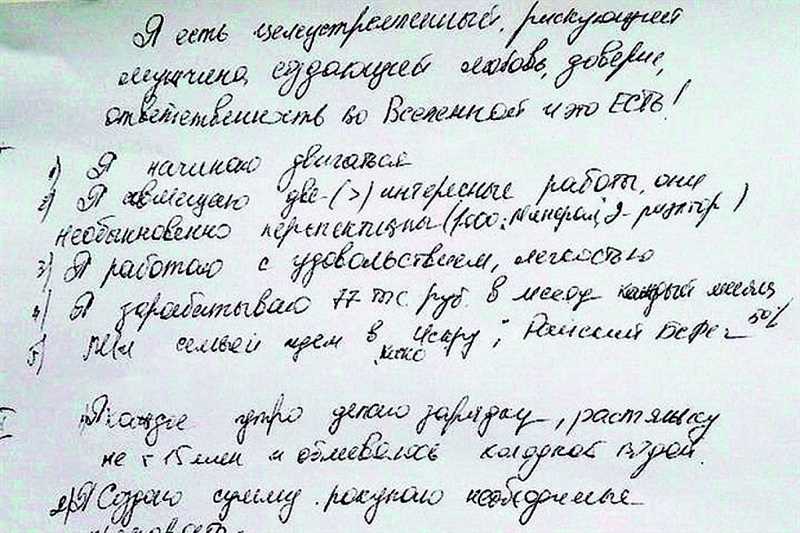 Я есть целеустремленный, рискующий
мужчина, создающий любовь, доверие,
ответственность во Вселенной и это ЕСТЬ!
1) Я начинаю двигаться
2) Я совмещаю две (>) интересные работы, они
необыкновенно перспективны (1000: Минерал, 2-риэлтор)
3) Я работаю с удовольствием, легкостью
4) Я зарабатываю 77 тыс. руб. в месяц каждый месяц
5) семьей идем в кино Искру; Райский 50%
1) Я каждое утро делаю зарядку, растяжку
не < 15 мин и обливаюсь холодной водой.
2) Я создаю сумму. покупаю необходимые